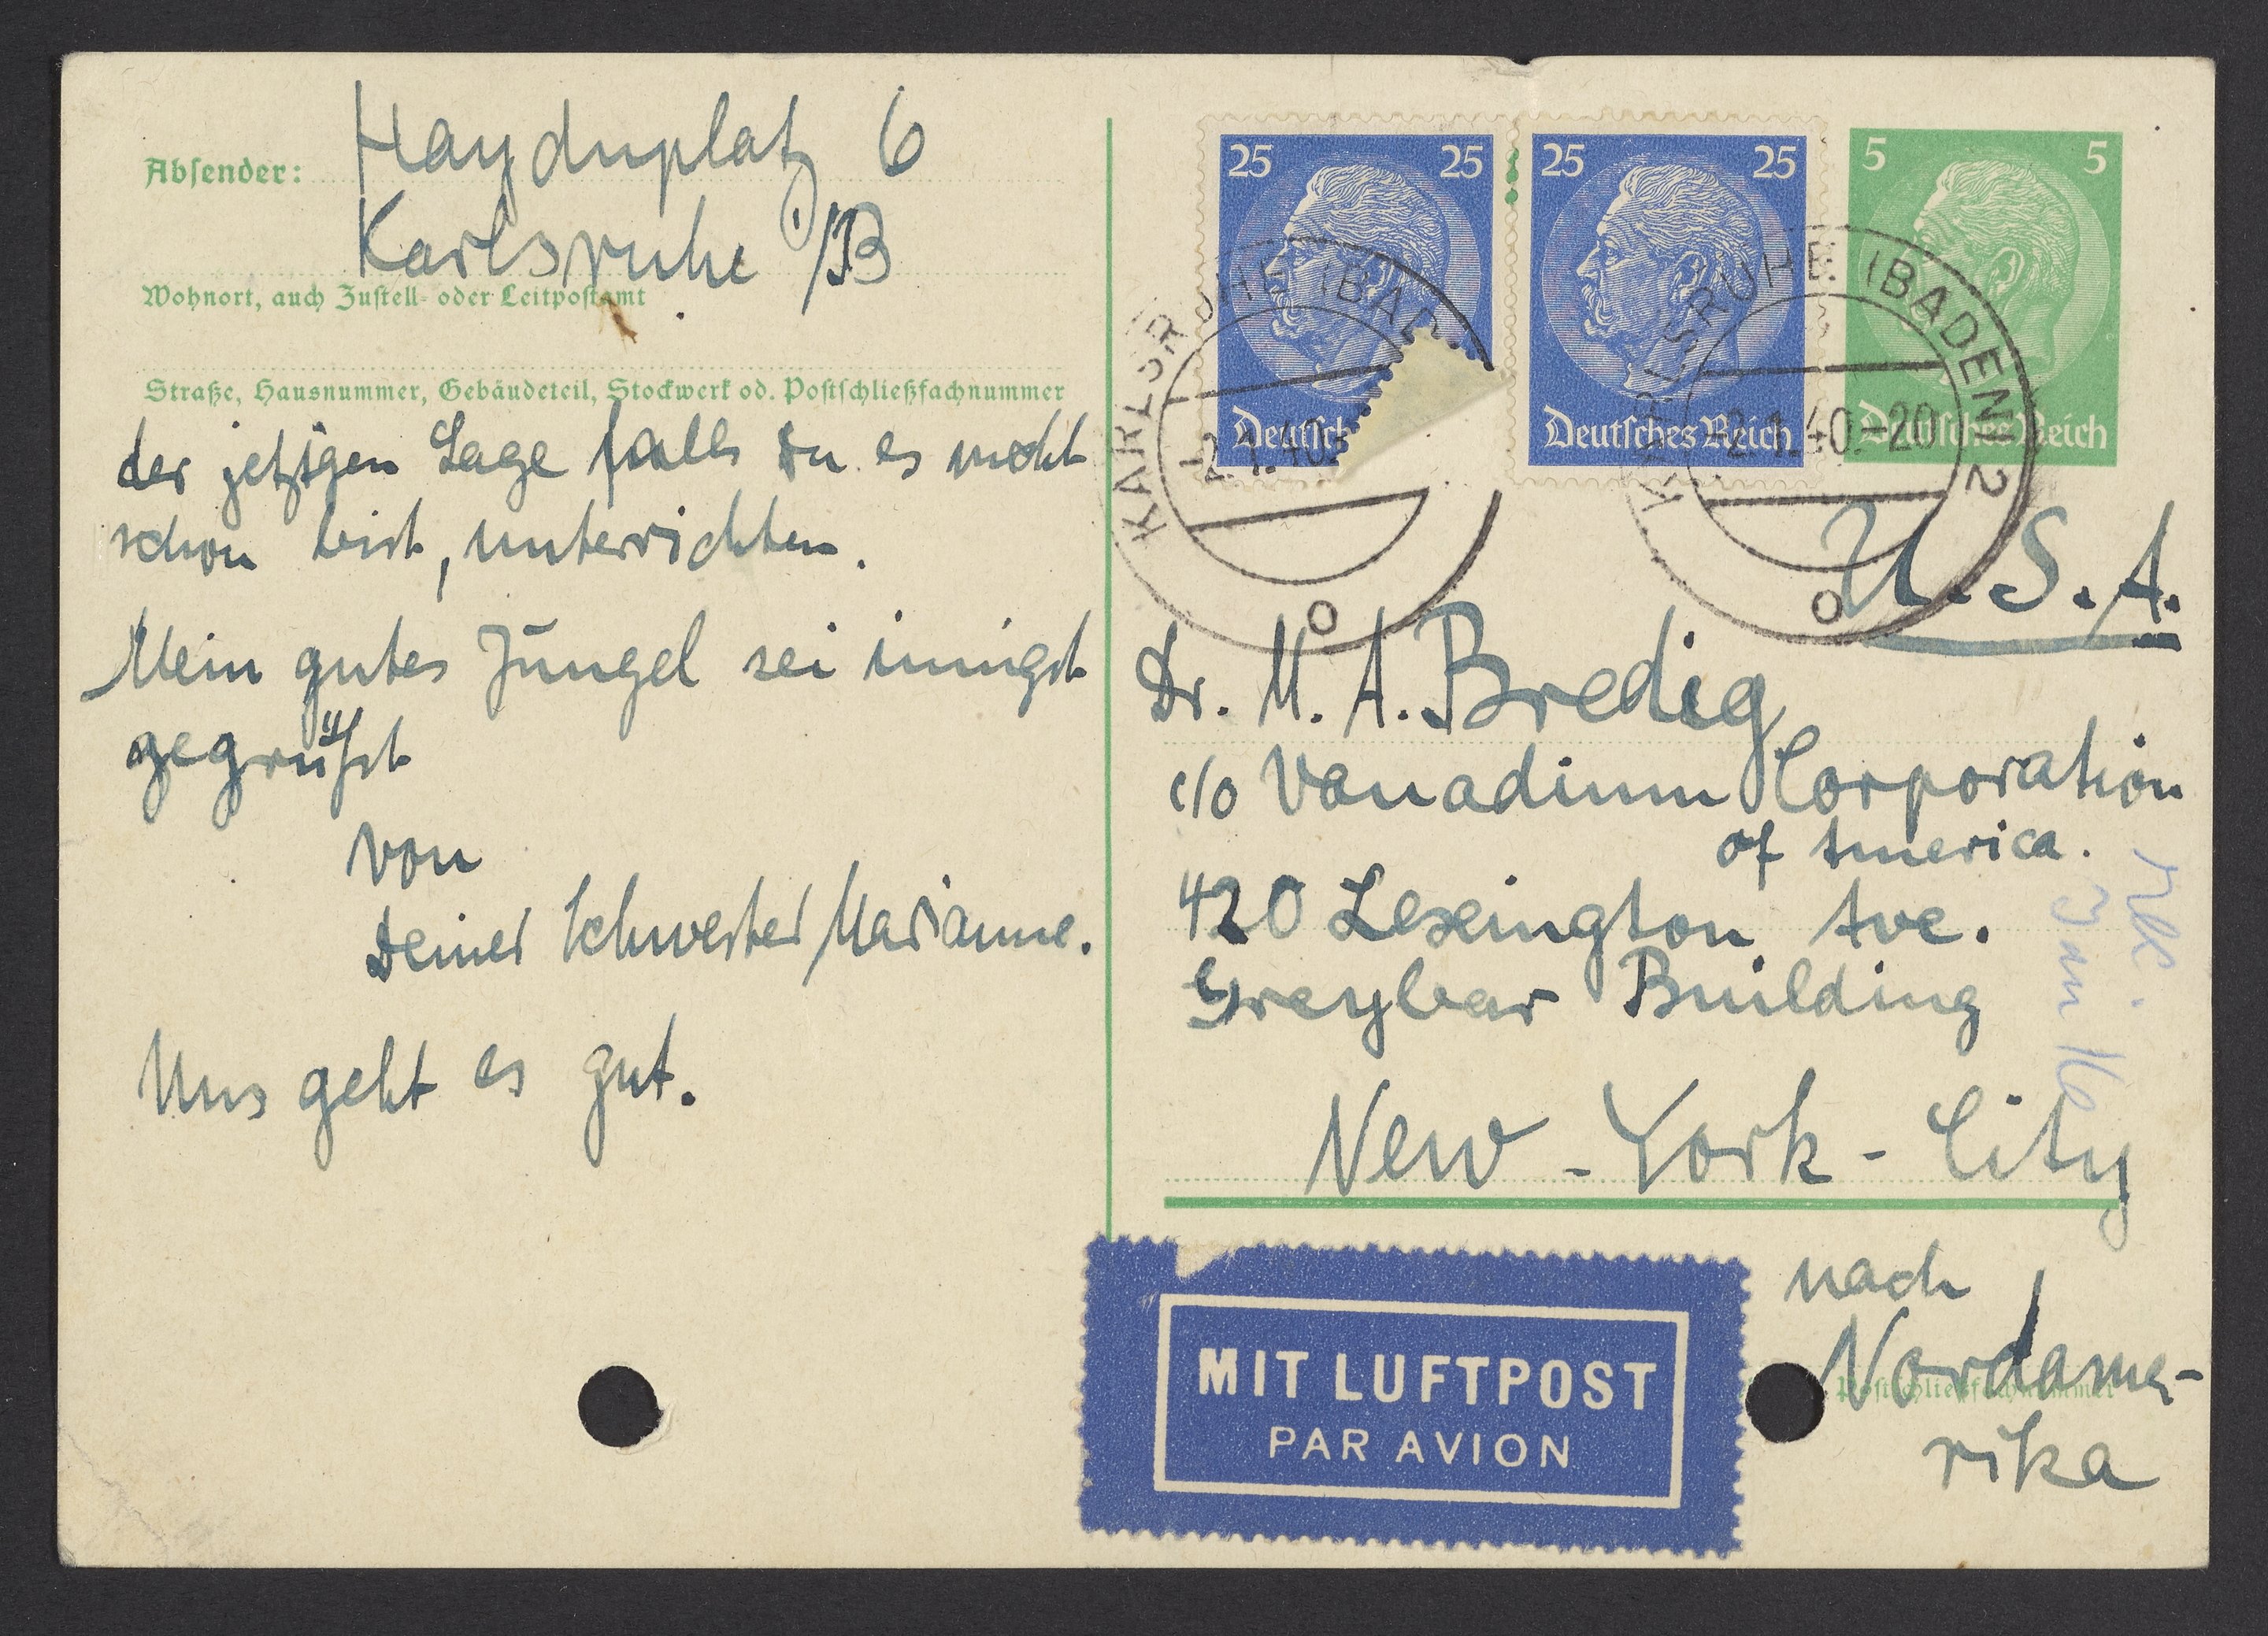 Absender: Haydnplatz 6
Karlsruhe i/B
Wohnort, auch Zustell- oder Leitpostamt
Straße, Hausnummer, Gebäudeteil, Stockwerk od. Postschließfachnummer
der jetzigen Lage falls Du es nicht
schon bist, unterrichten.
Mein gutes Jüngel sei innigst
gegrüßt
von
Deiner Schwester Marianne.
Uns geht es gut.
25 25 25 25 5 5
Deutsch Deutsches Reich Deutsches Reich
KARLSRUHE (BAD
-2.1.40
KARLSRUHE (BADEN) 2
-2.1.40.-20
U.S.A.
Dr. M. A. Bredig
c/o Vanadium Corporation
of America.
420 Lexington Ave.
Greybar Building
New-York-City
nach
Nordame-
rika
Postschließfachnummer
MIT LUFTPOST
PAR AVION